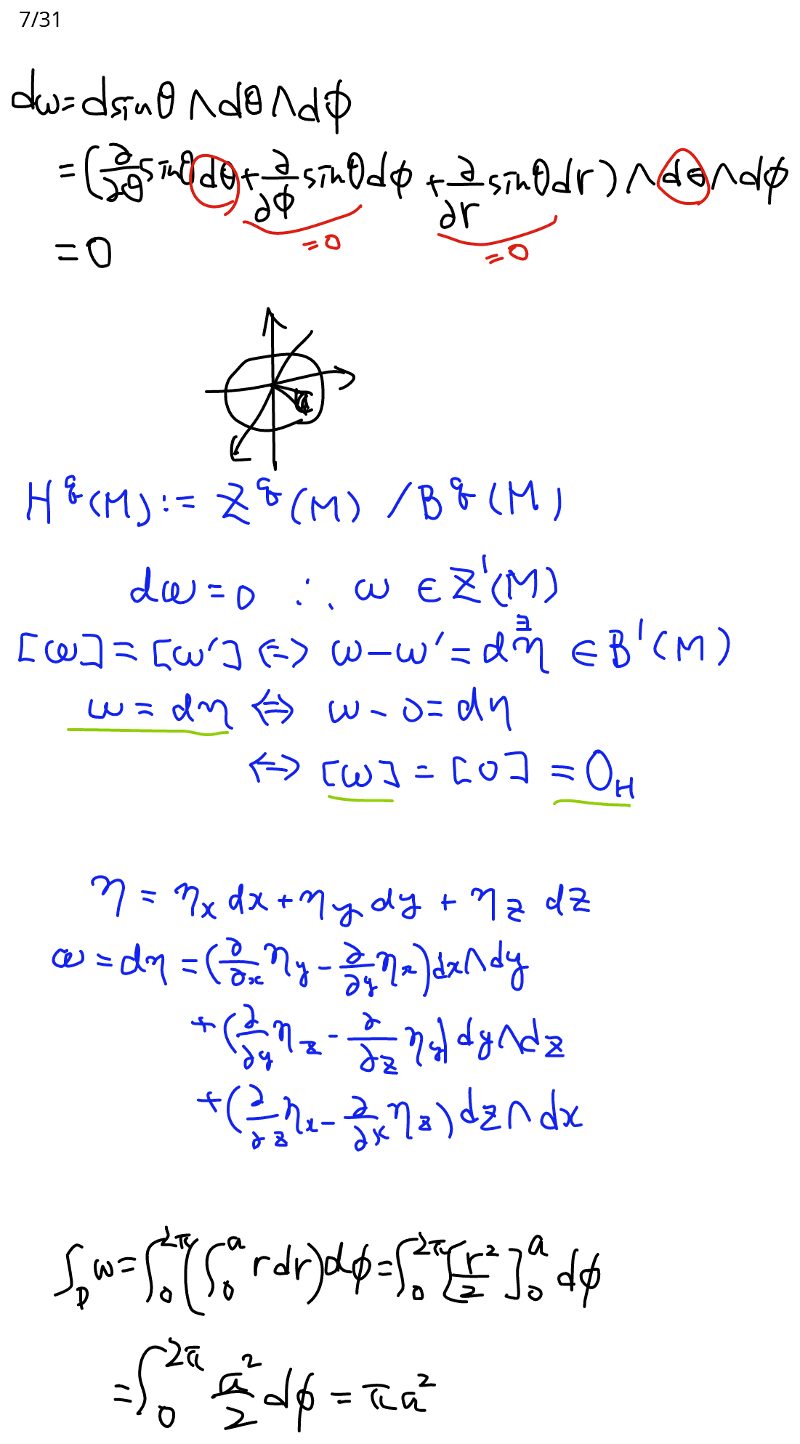 7/31
dω = d sinθ ∧ dθ ∧ dϕ
= (∂/∂θ sinθ dθ + ∂/∂ϕ sinθ dϕ + ∂/∂r sinθ dr) ∧ dθ ∧ dϕ
=0 =0
= 0
a
H^q(M) := Z^q(M) / B^q(M)
dω = 0 ∴ ω ∈ Z^1(M)
[ω] = [ω'] ⇔ ω - ω' = d∃η ∈ B^1(M)
ω = dη ⇔ ω - 0 = dη
⇔ [ω] = [0] = 0_H
η = η_x dx + η_y dy + η_z dz
ω = dη = (∂/∂x η_y - ∂/∂y η_x) dx∧dy
+ (∂/∂y η_z - ∂/∂z η_y) dy∧dz
+ (∂/∂z η_x - ∂/∂x η_z) dz∧dx
∫_D ω = ∫_0^{2π} (∫_0^a r dr) dϕ = ∫_0^{2π} [r²/2]_0^a dϕ
= ∫_0^{2π} a²/2 dϕ = πa²